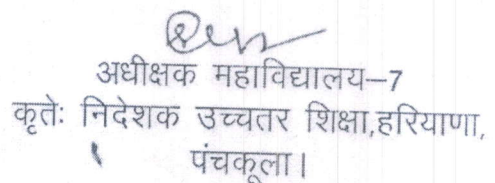 अधीक्षक महाविद्यालय–7
कृतेः निदेशक उच्चतर शिक्षा,हरियाणा,
पंचकूला।